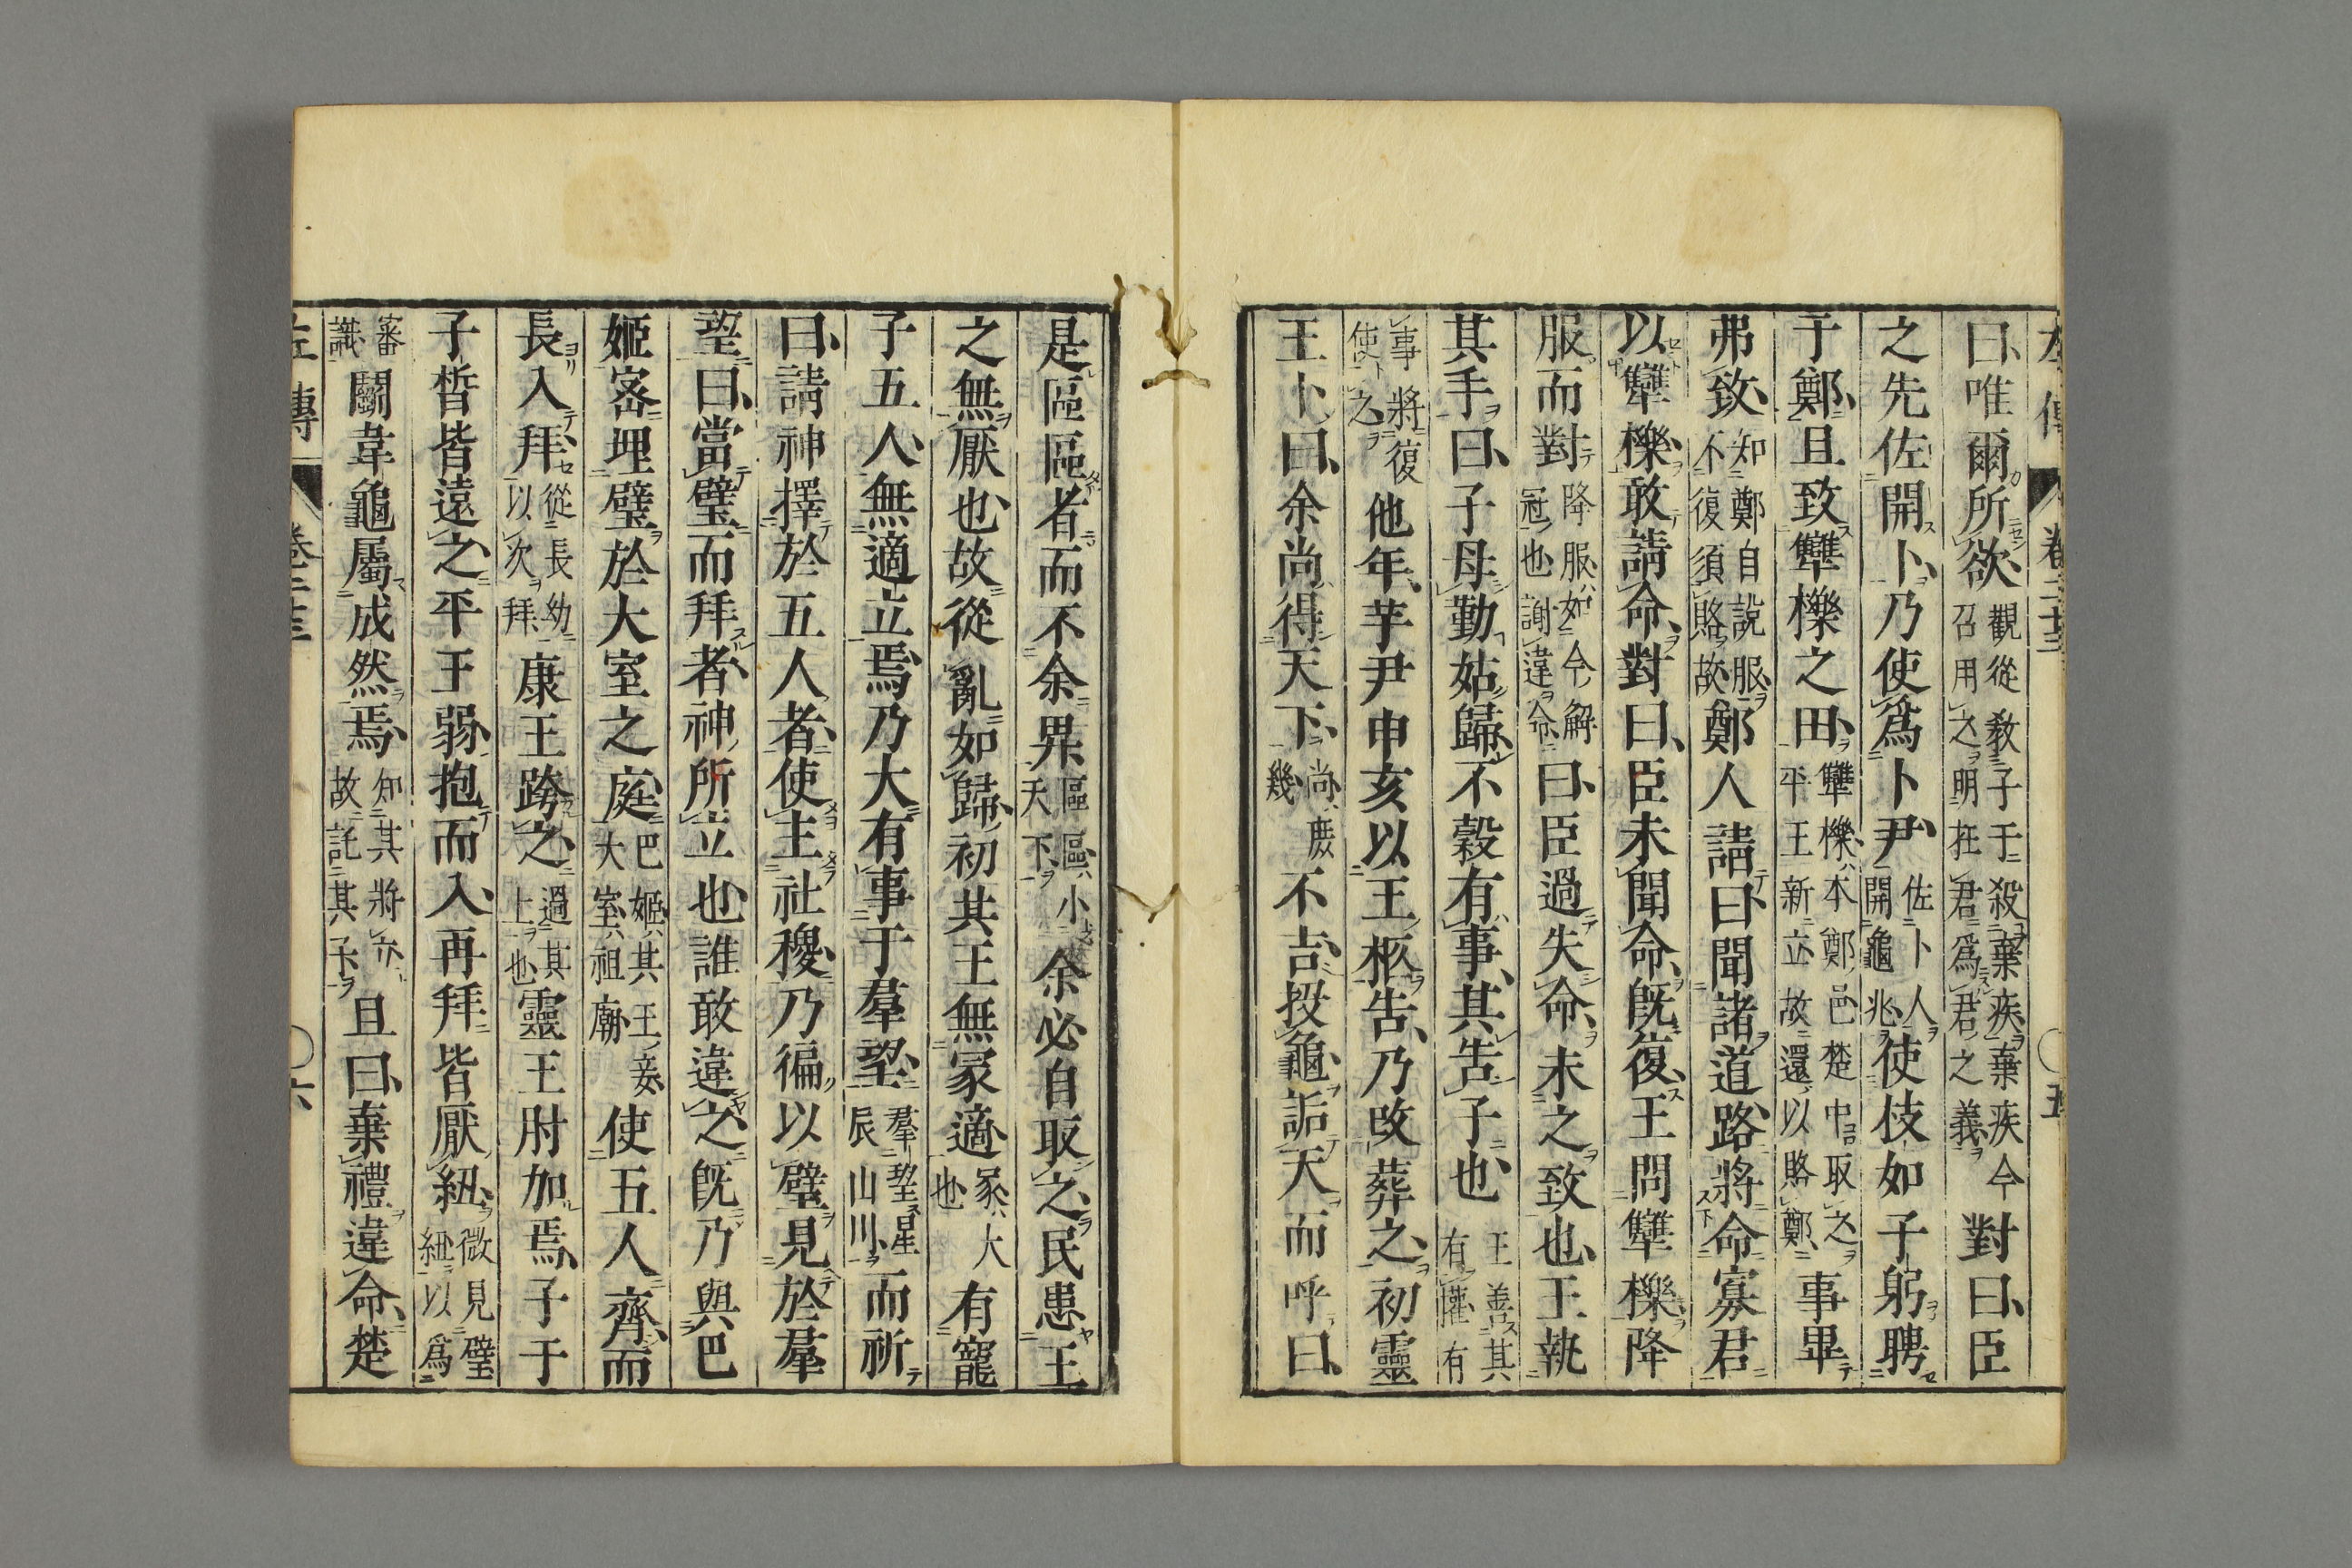 左傳 卷二十三 ○五
曰唯爾所欲 觀從教子于殺棄疾棄疾今召用之明在君為君之義 對曰臣
之先佐開卜乃使爲卜尹 佐卜人開龜兆 使枝如子躬聘
于鄭且致犫櫟之田 犫櫟本鄭邑楚中取之平王新立故還以賂鄭 事畢
弗致 知鄭自說服不復須賂故 鄭人請曰聞諸道路將命寡君
以犫櫟敢請命對曰臣未聞命既復王問犫櫟降
服而對 降服如今解冠也謝違命 曰臣過失命未之致也王執
其手曰子母勤姑歸不穀有事其告子也 王善其有權有
事將復使之 他年芋尹申亥以王柩告乃改葬之初靈
王卜曰余尚得天下 尚庶幾 不吉投龜詬天而呼曰
是區區者而不余畀 區區小天下 余必自取之民患王
之無厭也故從亂如歸初其王無冢適 冢大也 有寵
子五人無適立焉乃大有事于羣望 羣望星辰山川 而祈
曰請神擇於五人者使主社稷乃徧以璧見於羣
望曰當璧而拜者神所立也誰敢違之既乃與巴
姬密埋璧於大室之庭 巴姬其王妾大室祖廟 使五人齊而
長入拜 從長幼以次拜 康王跨之 過其上也 靈王肘加焉子于
子晳皆遠之平王弱抱而入再拜皆厭紐 微見璧紐以爲
審識 鬬韋龜屬成然焉 知其將立故託其子 且曰棄禮違命楚
左傳 卷二十三 ○六